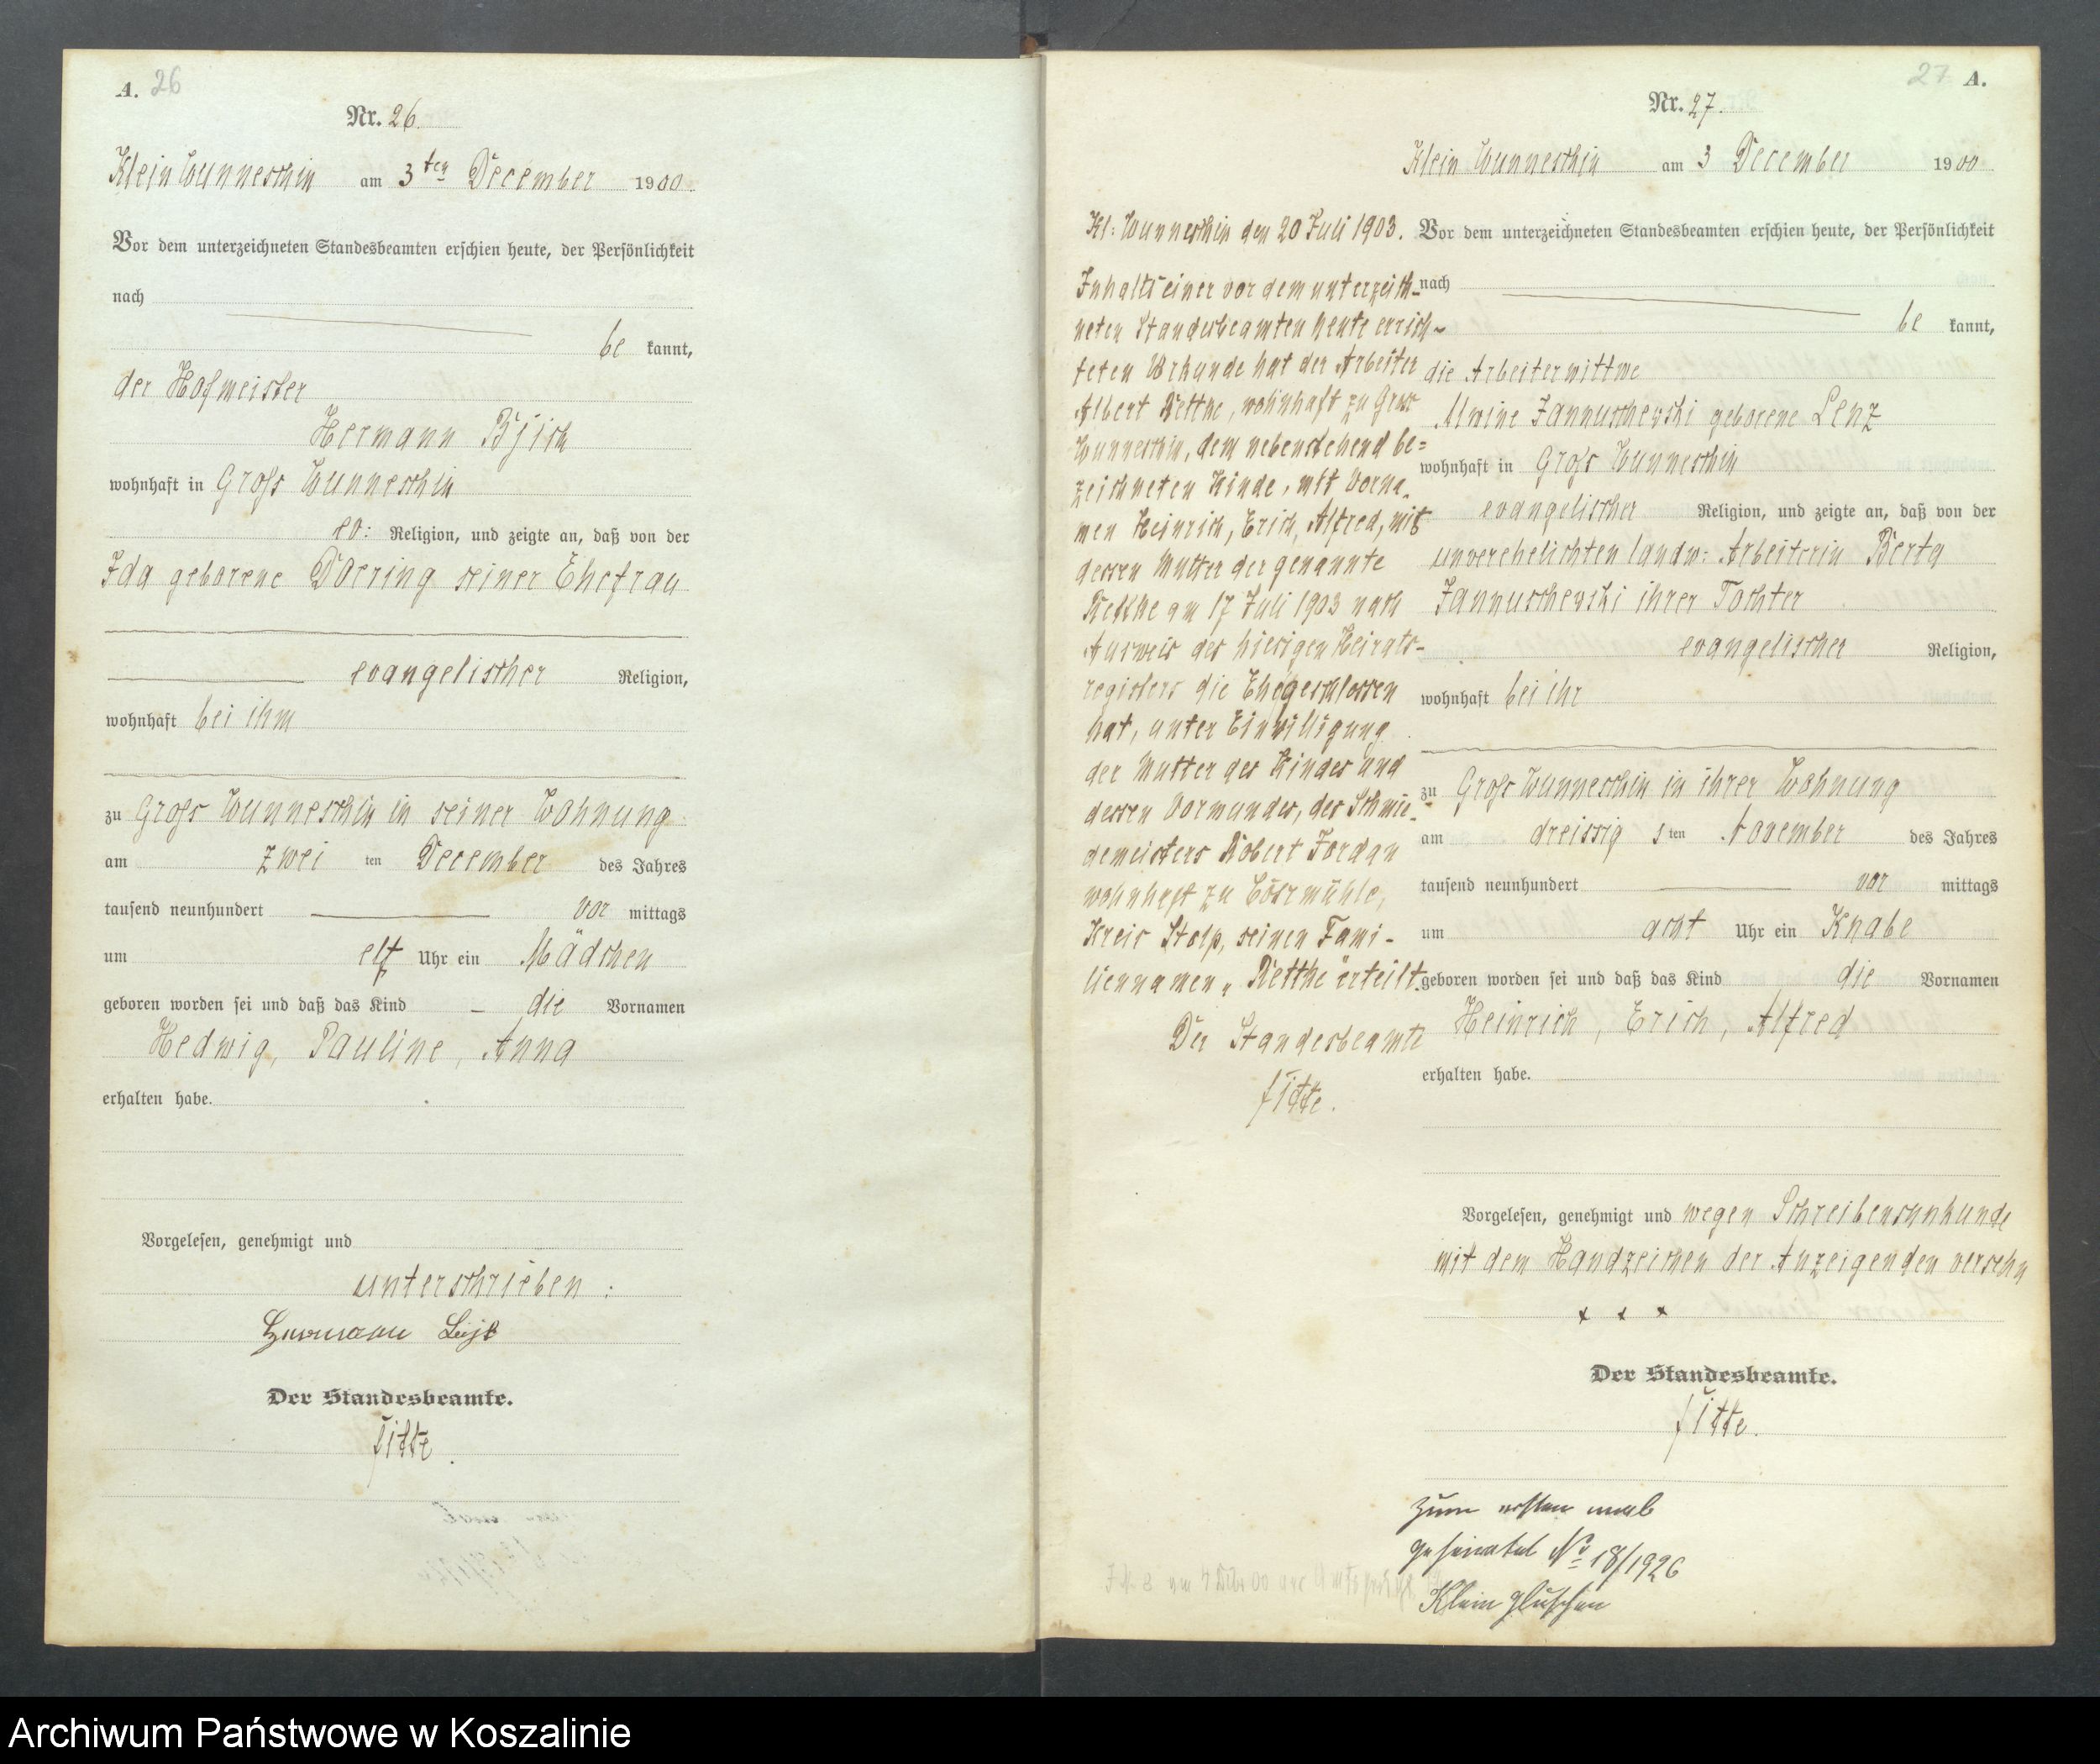 A. 26
Nr. 26.
Klein Wunneschin am 3ten December 1900
Vor dem unterzeichneten Standesbeamten erschien heute, der Persönlichkeit
nach
be kannt,
der Hofmeister
Hermann
wohnhaft in Gross Wunneschin
ev: Religion, und zeigte an, daß von der
Ida geborene Doering seiner Ehefrau
evangelischer Religion,
wohnhaft bei ihm
zu Gross Wunneschin in seiner Wohnung
am zwei ten December des Jahres
tausend neunhundert vor mittags
um elf Uhr ein Mädchen
geboren worden sei und daß das Kind – die Vornamen
Hedwig, Pauline, Anna
erhalten habe.
Vorgelesen, genehmigt und
unterschrieben:
Hermann
Der Standesbeamte.
27 A.
Nr. 27.
Klein Wunneschin am 3 December 1900
Vor dem unterzeichneten Standesbeamten erschien heute, der Persönlichkeit
nach
be kannt,
die Arbeiterwittwe
Alwine Jannuschewski geborene Lenz
wohnhaft in Gross Wunneschin
evangelischer Religion, und zeigte an, daß von der
unverehelichten landw: Arbeiterin Berta
Jannuschewski ihrer Tochter
evangelischer Religion,
wohnhaft bei ihr
zu Gross Wunneschin in ihrer Wohnung
am dreissig sten November des Jahres
tausend neunhundert vor mittags
um acht Uhr ein Knabe
geboren worden sei und daß das Kind die Vornamen
Heinrich, Erich, Alfred
erhalten habe.
Vorgelesen, genehmigt und wegen Schreibensunkunde
mit dem Handzeichen der Anzeigenden versehn
x x x
Der Standesbeamte.
Kl: Wunneschin den 20 Juli 1903.
Inhalts einer vor dem unterzeich-
neten Standesbeamten heute errich-
teten Urkunde hat der Arbeiter
Albert Retthe, wohnhaft zu Gross
Wunneschin, dem nebenstehend be=
zeichneten Kinde, mit Vorna-
men Heinrich, Erich, Alfred, mit
dessen Mutter der genannte
Retthe am 17 Juli 1903 nach
Ausweis des hiesigen Heirats-
registers die Ehe geschlossen
hat, unter Einwilligung
der Mutter des Kindes und
dessen Vormundes, des Schmie-
demeisters Robert Jordan
wohnhaft zu
Kreis Stolp, seinen Fami-
liennamen „Retthe" erteilt.
Der Standesbeamte
zum ersten mal
geheiratet No 18/1926
Klein Gluschen
Archiwum Państwowe w Koszalinie